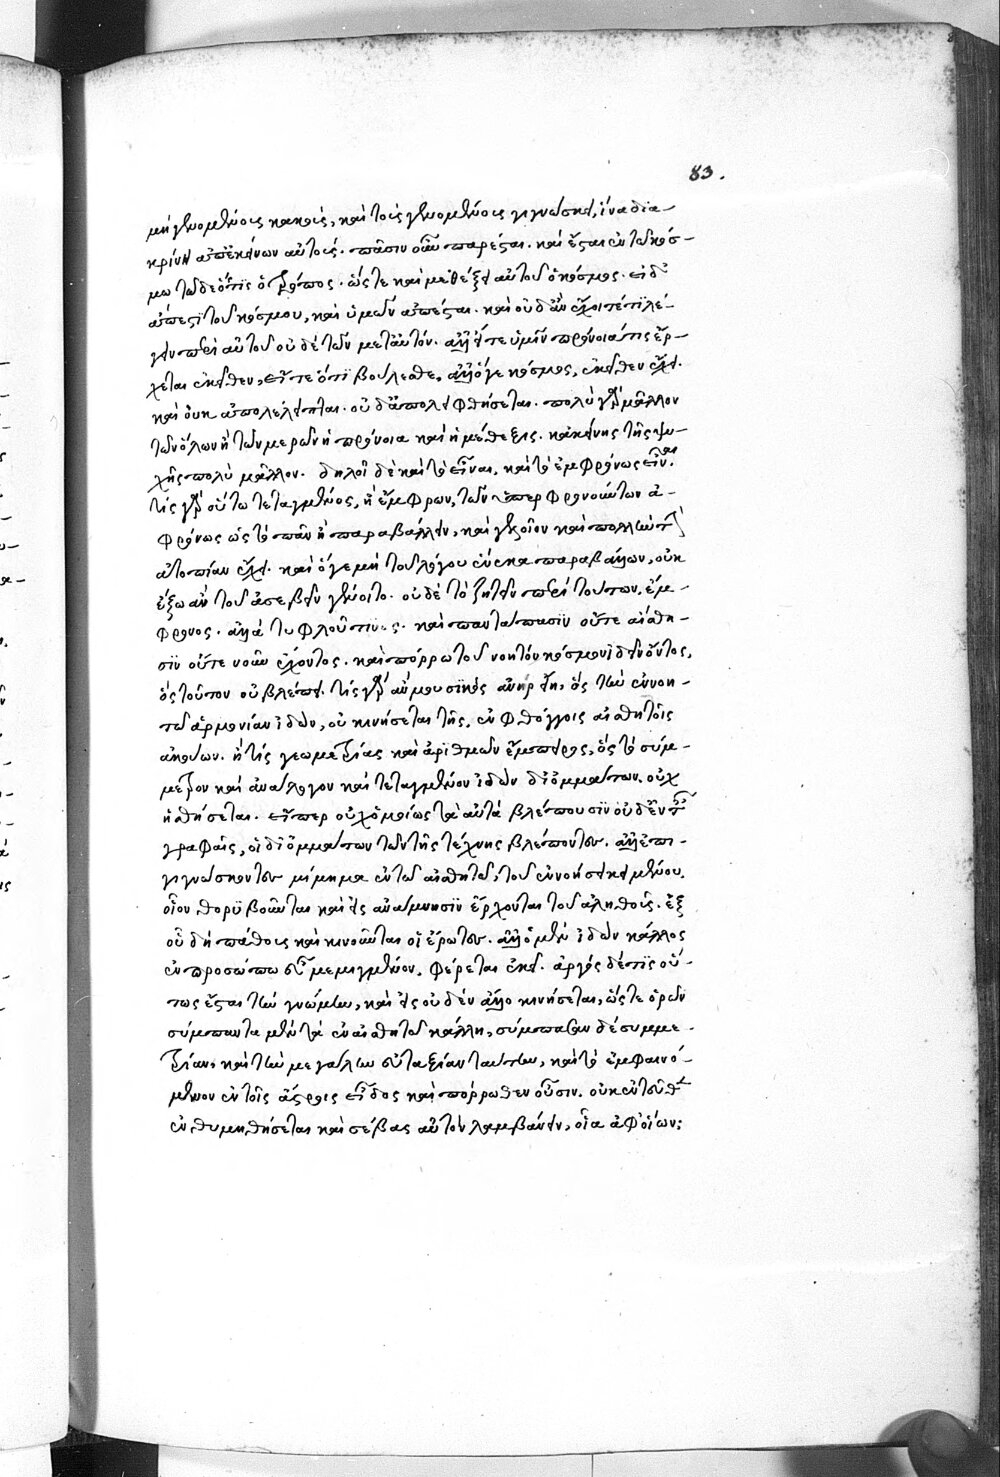 83.
μὴ γενομένοις κακοῖς, καὶ τοῖς γενομένοις γιγνώσκει, ἵνα δια-
κρίνῃ ἀπ' ἐκείνων αὐτούς. πᾶσιν οὖν παρέσται. καὶ ἔσται ἐν τῷ κόσ-
μῳ τῷδε ὅστις ὁ τρόπος. ὥστε καὶ μεθέξει αὐτοῦ ὁ κόσμος. εἰ δ'
ἄπεστι τοῦ κόσμου, καὶ ὑμῶν ἀπέσται. καὶ οὐδ' ἂν ἔχοιτέ τι λέ-
γειν περὶ αὐτοῦ οὐδὲ τῶν μετ' αὐτόν. ἀλλ' εἴτε ὑμῖν πρόνοιά τις ἔρ-
χεται ἐκεῖθεν, εἴτε ὅτι βούλεσθε, ἀλλ' ὅγε κόσμος, ἐκεῖθεν ἔχει.
καὶ οὐκ ἀπολέλειπται. οὐδ' ἀπολειφθήσεται. πολὺ γὰρ μᾶλλον
τῶν ὅλων ἢ τῶν μερῶν ἡ πρόνοια καὶ ἡ μέθεξις. κἀκείνης τῆς ψυ-
χῆς πολὺ μᾶλλον. δηλοῖ δὲ καὶ τὸ εἶναι, καὶ τὸ ἐμφρόνως εἶναι.
τίς γὰρ οὕτω τεταγμένος, ἢ ἔμφρων, τῶν ὑπερφρονούντων ἀ-
φρόνως ὡς τὸ πᾶν ἢ παραβάλλειν, καὶ γελοῖον καὶ πολλὴν τὴν
ἀτοπίαν ἔχει. καὶ ὅγε μὴ τοῦ λόγου ἕνεκα παραβάλλων, οὐκ
ἔξω ἂν τοῦ ἀσεβεῖν γένοιτο. οὐδὲ τὸ ζητεῖν περὶ τούτων, ἔμ-
φρονος. ἀλλὰ τυφλοῦ τινος. καὶ παντάπασιν οὔτε αἴσθη-
σιν οὔτε νοῦν ἔχοντος. καὶ πόρρω τοῦ νοητὸν κόσμον ἰδεῖν ὄντος,
ὃς τοῦτον οὐ βλέπει. τίς γὰρ ἂν μουσικὸς ἀνὴρ εἴη, ὃς τὴν ἐν νοη-
τῷ ἁρμονίαν ἰδὼν, οὐ κινήσεται τῆς, ἐν φθόγγοις αἰσθητοῖς
ἀκούων. ἢ τίς γεωμετρίας καὶ ἀριθμῶν ἔμπειρος, ὃς τὸ σύμ-
μετρον καὶ ἀνάλογον καὶ τεταγμένον ἰδὼν δι' ὀμμάτων. οὐχ
ἡσθήσεται. εἴπερ οὐχ ὁμοίως τὰ αὐτὰ βλέπουσιν οὐδ' ἐν ταῖς
γραφαῖς, οἱ δι' ὀμμάτων τῶν τῆς τέχνης βλέποντες. ἀλλ' ἐπι-
γιγνώσκοντες μίμημα ἐν τῷ αἰσθητῷ, τοῦ ἐν νοήσει κειμένου.
οἷον θορυβοῦνται καὶ εἰς ἀνάμνησιν ἔρχονται τοῦ ἀληθοῦς. ἐξ
οὗ δὴ πάθους καὶ κινοῦνται οἱ ἔρωτες. ἀλλ' ὁ μὲν ἰδὼν κάλλος
ἐν προσώπῳ εὖ μεμιγμένον, φέρεται ἐκεῖ. ἀργὸς δὲ τίς οὕ-
τως ἔσται τὴν γνώμην, καὶ εἰς οὐδὲν ἄλλο κινήσεται, ὥστε ὁρῶν
σύμπαντα μὲν τὰ ἐν αἰσθητῷ κάλλη, σύμπασαν δὲ συμμε-
τρίαν, καὶ τὴν μεγάλην εὐταξίαν ταύτην, καὶ τὸ ἐμφαινό-
μενον ἐν τοῖς ἄστροις εἶδος καὶ πόρρωθεν οὖσιν. οὐκ ἐντεῦθεν
ἐνθυμηθήσεται καὶ σέβας αὐτὸν λαμβάνειν, οἷα ἀφ' οἵων: